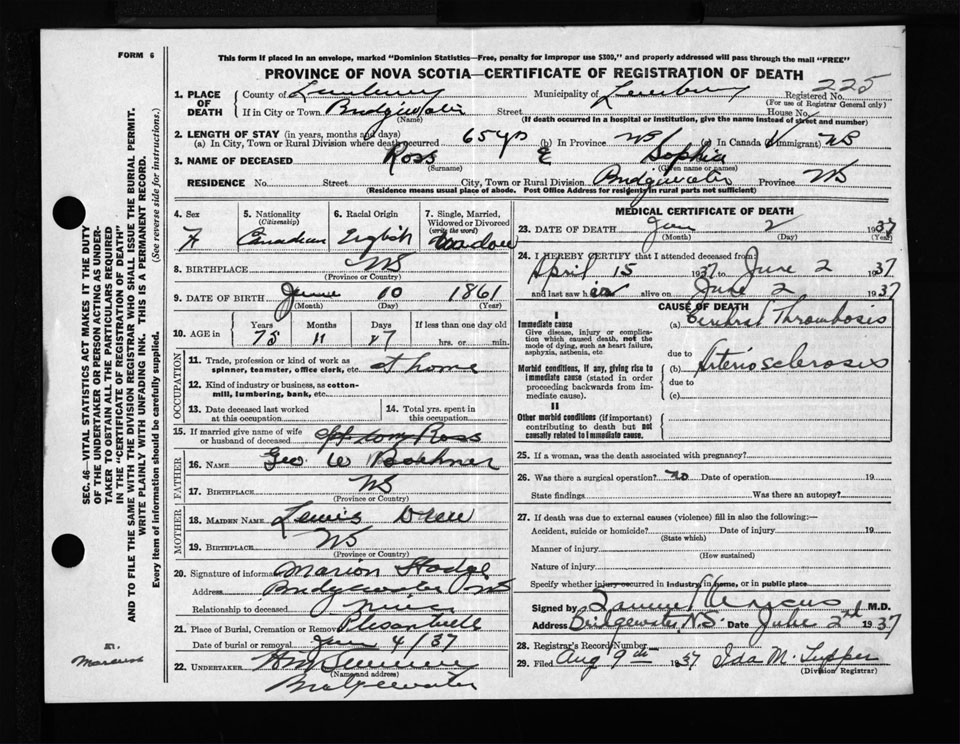 FORM 6
This form if placed in an envelope, marked "Dominion Statistics—Free, penalty for improper use $300," and properly addressed will pass through the mail "FREE"
PROVINCE OF NOVA SCOTIA—CERTIFICATE OF REGISTRATION OF DEATH
1. PLACE OF DEATH
County of Lunenburg Municipality of Lunenburg Registered No. 225
(For use of Registrar General only)
If in City or Town Bridgewater Street House No.
(Name) (If death occurred in a hospital or institution, give the name instead of street and number)
2. LENGTH OF STAY (in years, months and days)
(a) In City, Town or Rural Division where death occurred 65 yrs (b) In Province NS (c) In Canada (if immigrant) NS
3. NAME OF DECEASED Ross E Sophia
(Surname) (Given name or names)
RESIDENCE No. Street City, Town or Rural Division Bridgewater Province NS
(Residence means usual place of abode. Post Office Address for residents in rural parts not sufficient)
4. Sex F
5. Nationality (Citizenship) Canadian
6. Racial Origin English
7. Single, Married, Widowed or Divorced (write the word) Widow
8. BIRTHPLACE NS
(Province or Country)
9. DATE OF BIRTH June 10 1861
(Month) (Day) (Year)
10. AGE in Years Months Days If less than one day old
75 11 27 hrs. or min.
OCCUPATION
11. Trade, profession or kind of work as spinner, teamster, office clerk, etc. At home
12. Kind of industry or business, as cotton-mill, lumbering, bank, etc.
13. Date deceased last worked at this occupation
14. Total yrs. spent in this occupation
15. If married give name of wife or husband of deceased Ross
FATHER
16. NAME Geo W Boehner
17. BIRTHPLACE NS
(Province or Country)
MOTHER
18. MAIDEN NAME Lewis Drew
19. BIRTHPLACE NS
(Province or Country)
20. Signature of informant Marion Hodge
Address Bridgewater NS
Relationship to deceased Niece
21. Place of Burial, Cremation or Removal
Date of burial or removal 4/37
22. UNDERTAKER
(Name and address)
Bridgewater
MEDICAL CERTIFICATE OF DEATH
23. DATE OF DEATH 2 1937
(Month) (Day) (Year)
24. I HEREBY CERTIFY that I attended deceased from:
April 15 1937 to June 2 1937
and last saw her alive on June 2 1937
CAUSE OF DEATH
I
Immediate cause (a) Cerebral Thrombosis
Give disease, injury or complication which caused death, not the mode of dying, such as heart failure, asphyxia, asthenia, etc
due to
Morbid conditions, if any, giving rise to immediate cause (stated in order proceeding backwards from immediate cause).
(b) Arteriosclerosis
due to
(c)
II
Other morbid conditions (if important) contributing to death but not causally related to immediate cause.
25. If a woman, was the death associated with pregnancy?
26. Was there a surgical operation? No Date of operation 19
State findings Was there an autopsy?
27. If death was due to external causes (violence) fill in also the following:—
Accident, suicide or homicide? Date of injury 19
(State which)
Manner of injury
(How sustained)
Nature of injury
Specify whether injury occurred in industry, in home, or in public place
Signed by Marcus M.D.
Address Bridgewater, N.S. Date June 2nd 1937
28. Registrar's Record Number
29. Filed Aug 9th 1937 Ida M. Tupper
(Division Registrar)
SEC. 46—VITAL STATISTICS ACT MAKES IT THE DUTY
OF THE UNDERTAKER OR PERSON ACTING AS UNDER-
TAKER TO OBTAIN ALL THE PARTICULARS REQUIRED
IN THE "CERTIFICATE OF REGISTRATION OF DEATH"
AND TO FILE THE SAME WITH THE DIVISION REGISTRAR WHO SHALL ISSUE THE BURIAL PERMIT.
WRITE PLAINLY WITH UNFADING INK. THIS IS A PERMANENT RECORD.
Every item of information should be carefully supplied. (See reverse side for instructions.)
Marcus